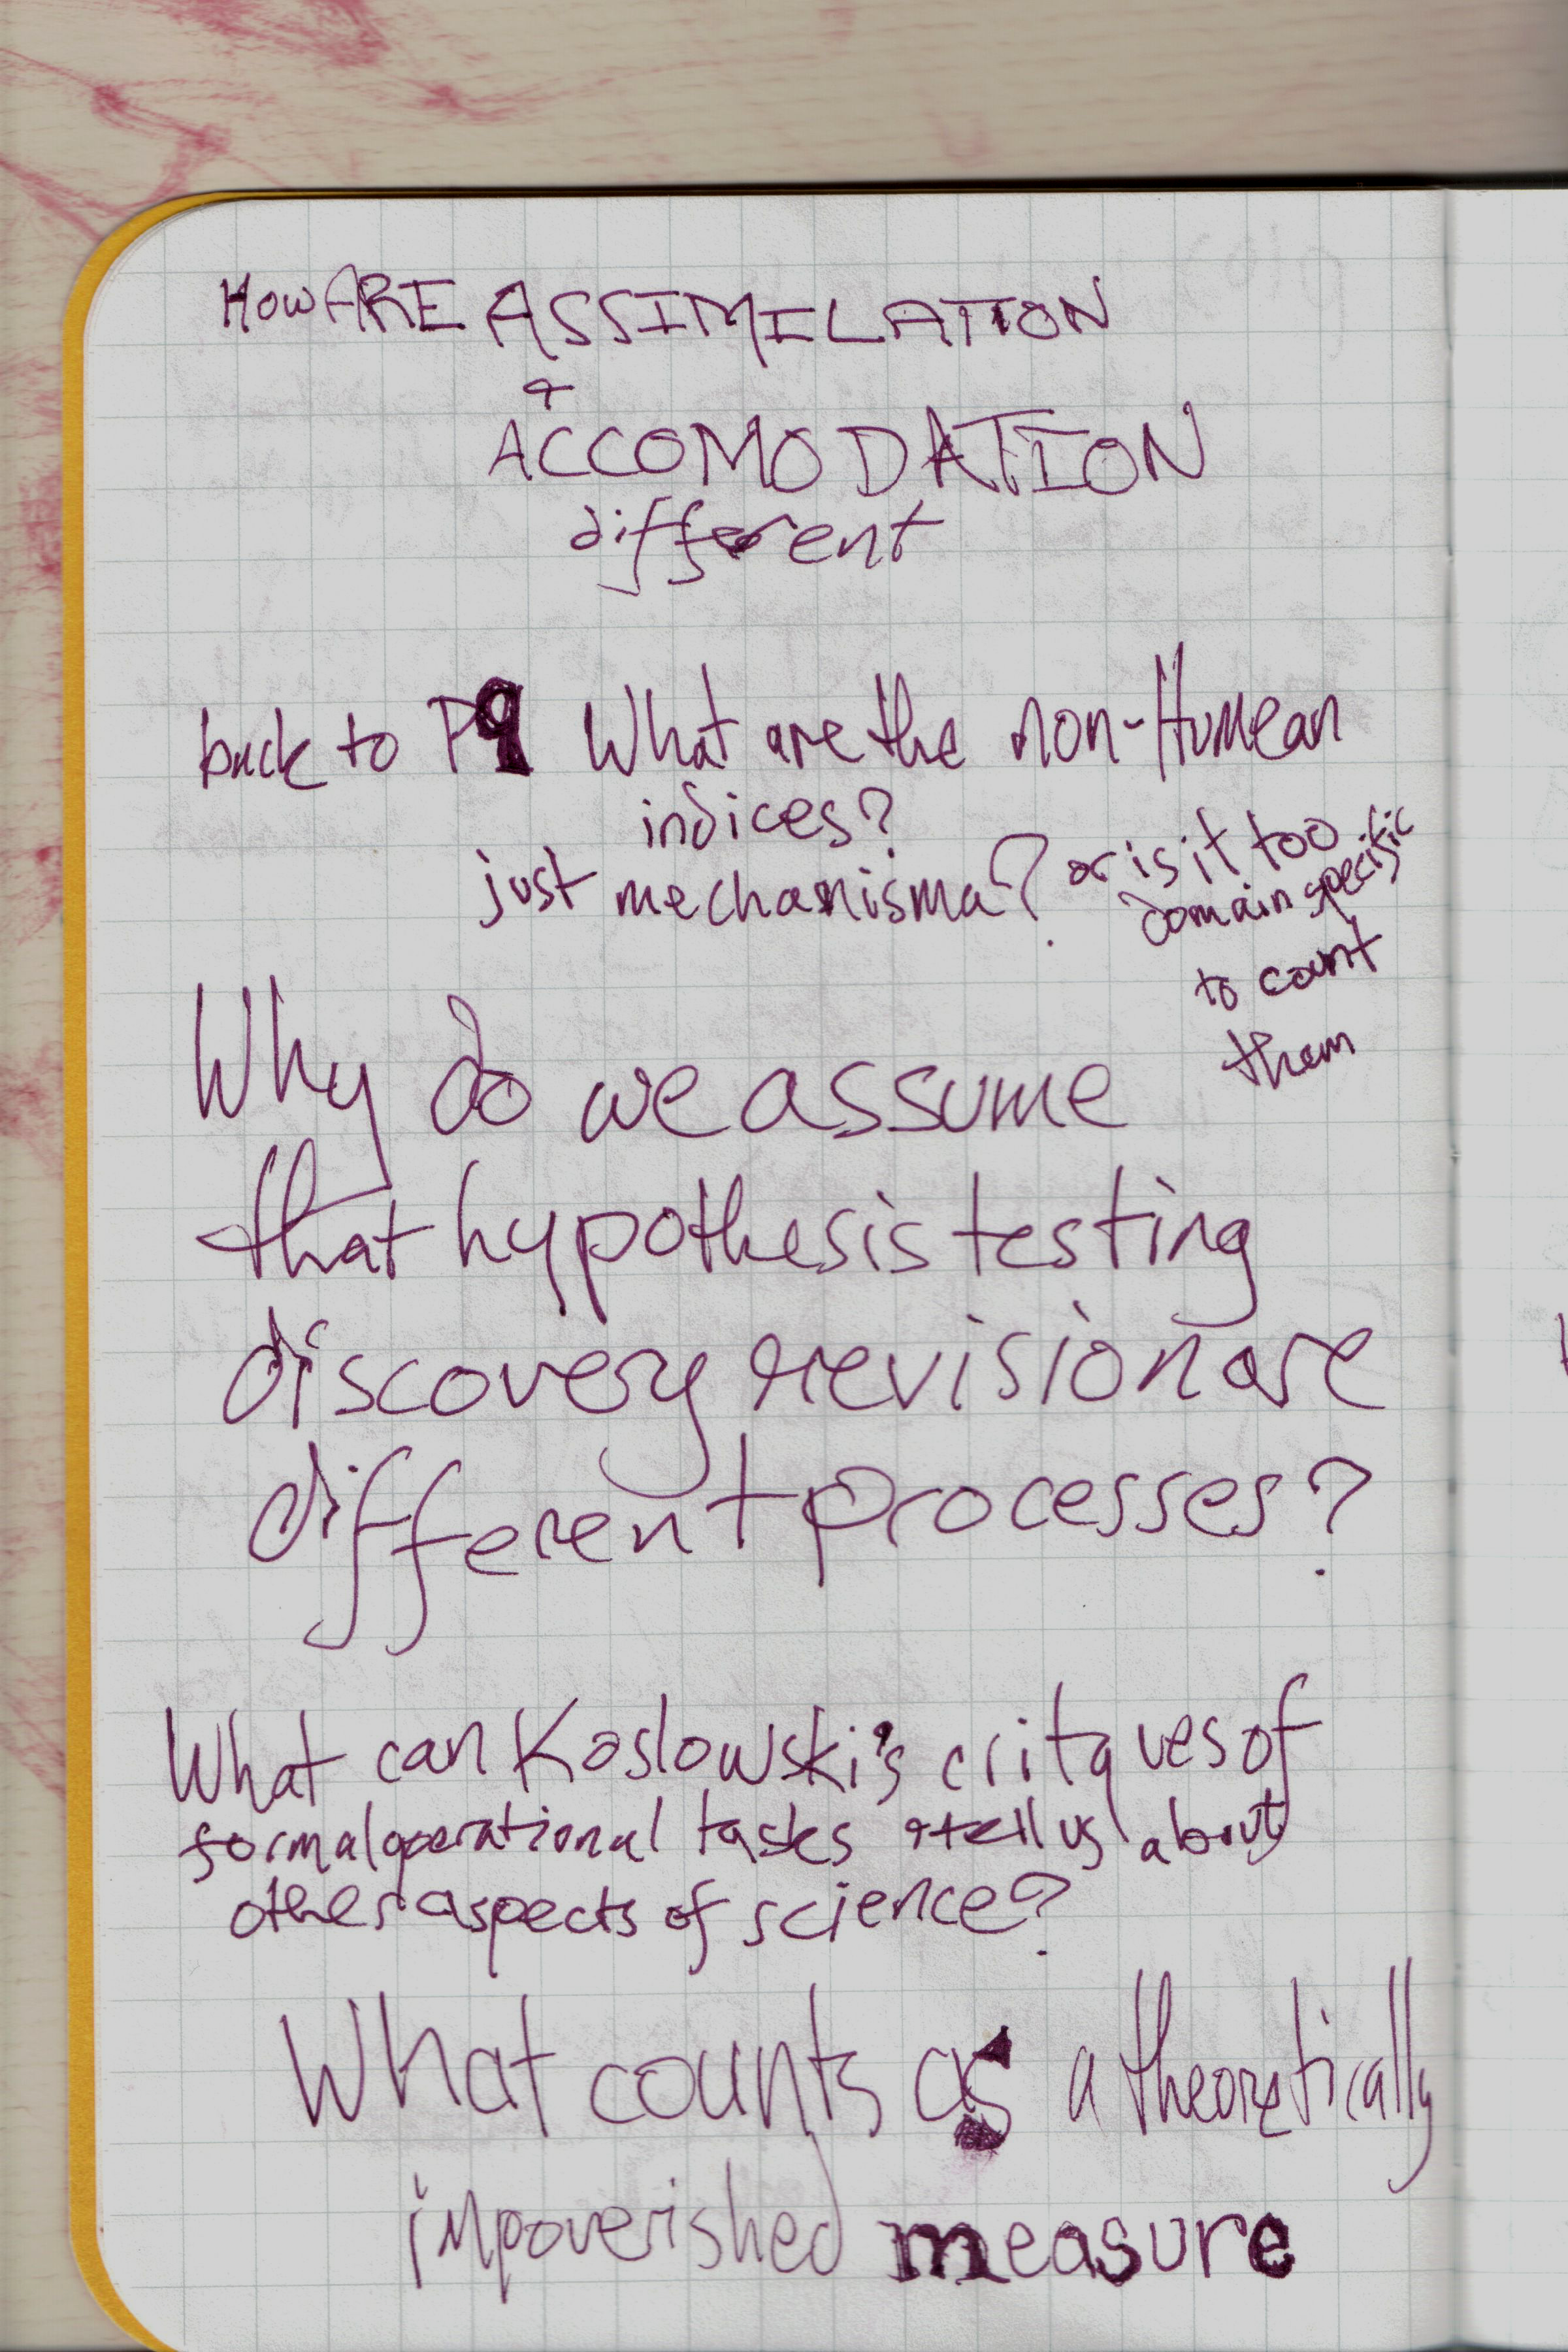 How ARE ASSIMILATION
&
ACCOMODATION
different
back to P9 What are the non-Humean
indices?
just mechanisma? or is it too
domain specific
to count
them
Why do we assume
that hypothesis testing
discovery revision are
different processes?
What can Koslowski's critques of
formal operational tasks tell us about
other aspects of science?
What counts as a theoretically
impoverished measure